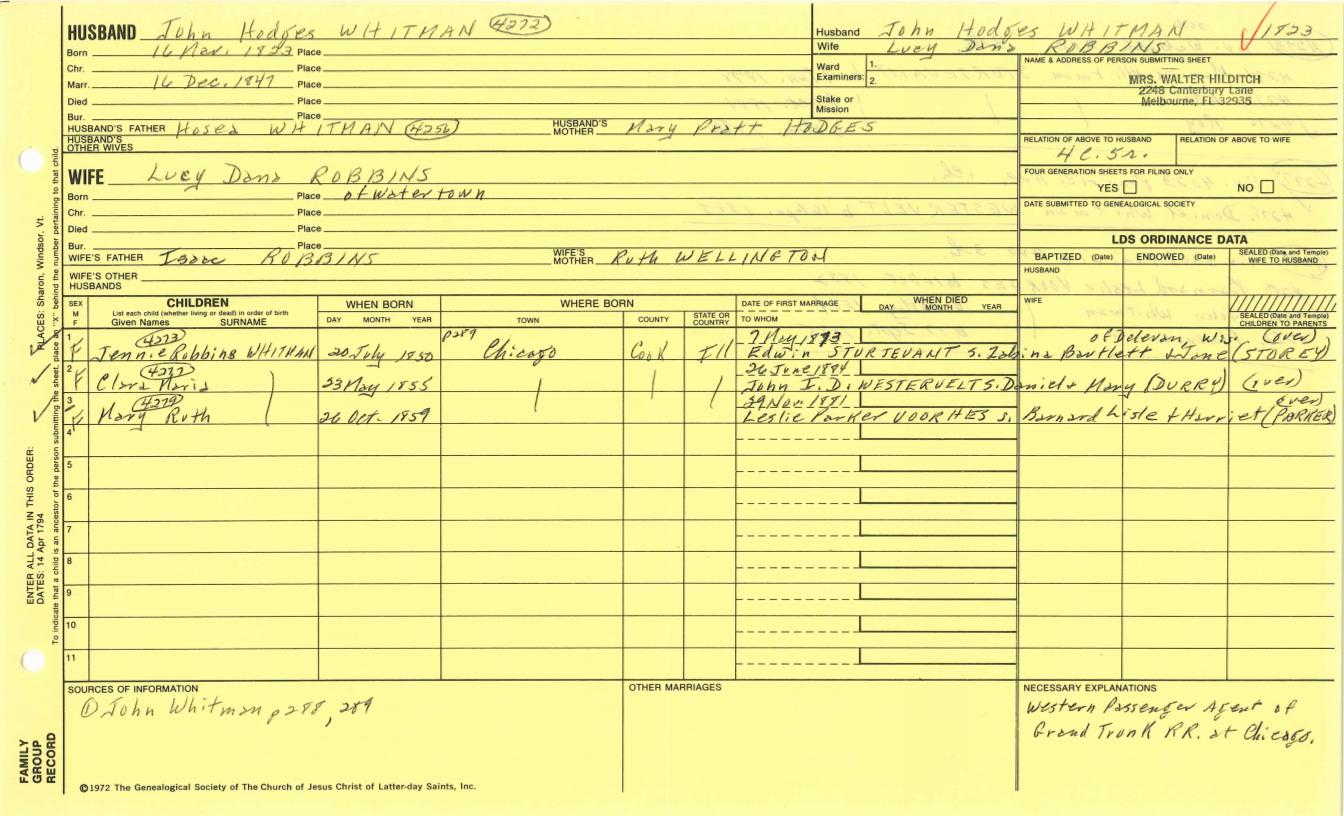 HUSBAND John Hodges WHITMAN 4272
Born 16 Mar. 1823 Place
Chr. Place
Marr. 16 Dec. 1847 Place
Died Place
Bur. Place
HUSBAND'S FATHER Hosea WHITMAN 4256 HUSBAND'S MOTHER Mary Pratt HODGES
HUSBAND'S OTHER WIVES
Husband John Hodges WHITMAN 1823
Wife Lucy Dana ROBBINS
Ward Examiners: 1. 2.
Stake or Mission
NAME & ADDRESS OF PERSON SUBMITTING SHEET
MRS. WALTER HILDITCH
2248 Canterbury Lane
Melbourne, FL 32935
RELATION OF ABOVE TO HUSBAND RELATION OF ABOVE TO WIFE
4c. 5r.
FOUR GENERATION SHEETS FOR FILING ONLY
YES NO
DATE SUBMITTED TO GENEALOGICAL SOCIETY
WIFE Lucy Dana ROBBINS
Born Place of Watertown
Chr. Place
Died Place
Bur. Place
WIFE'S FATHER Isaac ROBBINS WIFE'S MOTHER Ruth WELLINGTON
WIFE'S OTHER HUSBANDS
LDS ORDINANCE DATA
BAPTIZED (Date) ENDOWED (Date) SEALED (Date and Temple) WIFE TO HUSBAND
HUSBAND
WIFE
SEALED (Date and Temple) CHILDREN TO PARENTS
SEX M F CHILDREN WHEN BORN WHERE BORN DATE OF FIRST MARRIAGE WHEN DIED
List each child (whether living or dead) in order of birth
Given Names SURNAME DAY MONTH YEAR TOWN COUNTY STATE OR COUNTRY TO WHOM DAY MONTH YEAR
1 4273 p289 7 May 1873 of Delevan, Wis. (over)
F Jennie Robbins WHITMAN 20 July 1850 Chicago Cook Ill Edwin STURTEVANT s. Zabina Bartlett & Jane (STOREY)
2 4277 26 June 1884
F Clara Maria 23 May 1855 John I. D. WESTERVELT s. Daniel & Mary (DURRY) (over)
3 4279 29 Nov 1881 over)
F Mary Ruth 26 Oct. 1859 Leslie Parker VOORHES s. Barnard Lisle & Harriet (PARKER)
4
5
6
7
8
9
10
11
SOURCES OF INFORMATION
① John Whitman p 288, 289
OTHER MARRIAGES
NECESSARY EXPLANATIONS
Western Passenger Agent of
Grand Trunk RR. at Chicago.
©1972 The Genealogical Society of The Church of Jesus Christ of Latter-day Saints, Inc.
FAMILY GROUP RECORD
ENTER ALL DATA IN THIS ORDER:
DATES: 14 Apr 1794
PLACES: Sharon, Windsor, Vt.
To indicate that a child is an ancestor of the person submitting the sheet, place "X" behind the number pertaining to that child.